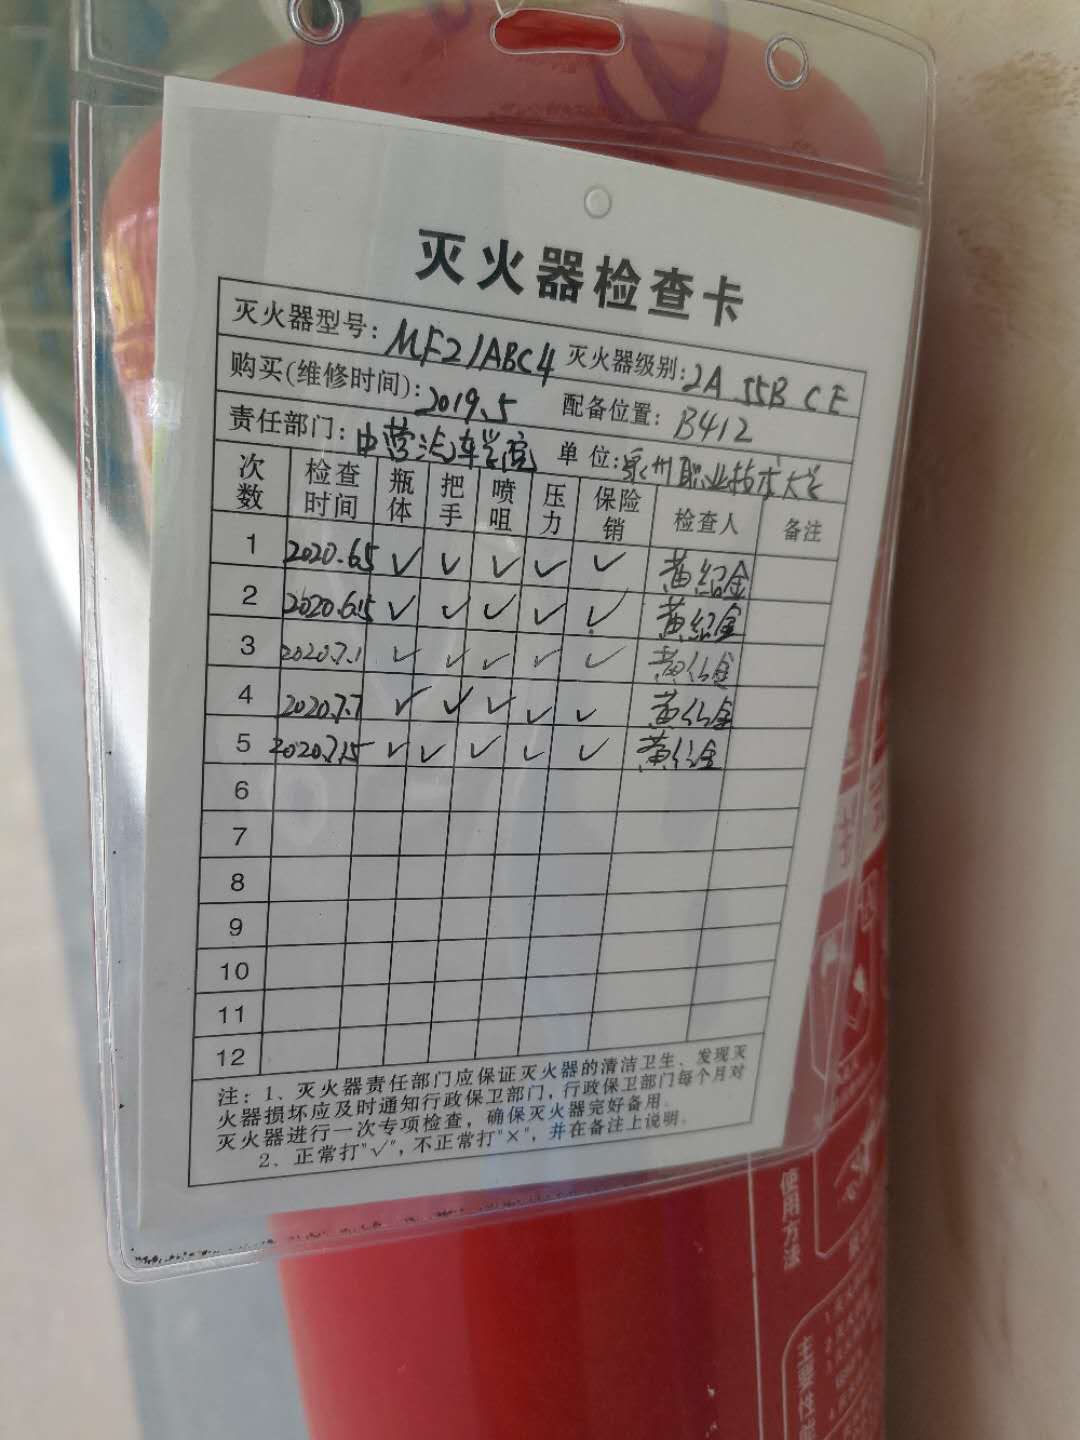 灭火器检查卡
灭火器型号: MFZ/ABC4 灭火器级别: 2A 55B C E
购买(维修时间): 2019.5 配备位置: B412
责任部门: 中营汽车学院 单位: 泉州职业技术大学
次数 检查时间 瓶体 把手 喷咀 压力 保险销 检查人 备注
1 2020.6.5 ✓ ✓ ✓ ✓ ✓ 黄绍金
2 2020.6.15 ✓ ✓ ✓ ✓ ✓ 黄绍金
3 2020.7.1 ✓ ✓ ✓ ✓ ✓ 黄绍金
4 2020.7.7 ✓ ✓ ✓ ✓ ✓ 黄绍金
5 2020.7.15 ✓ ✓ ✓ ✓ ✓ 黄绍金
6
7
8
9
10
11
12
注: 1、灭火器责任部门应保证灭火器的清洁卫生、发现灭
火器损坏应及时通知行政保卫部门, 行政保卫部门每个月对
灭火器进行一次专项检查, 确保灭火器完好备用。
2、正常打"√", 不正常打"×", 并在备注上说明。
使用方法
主要性能